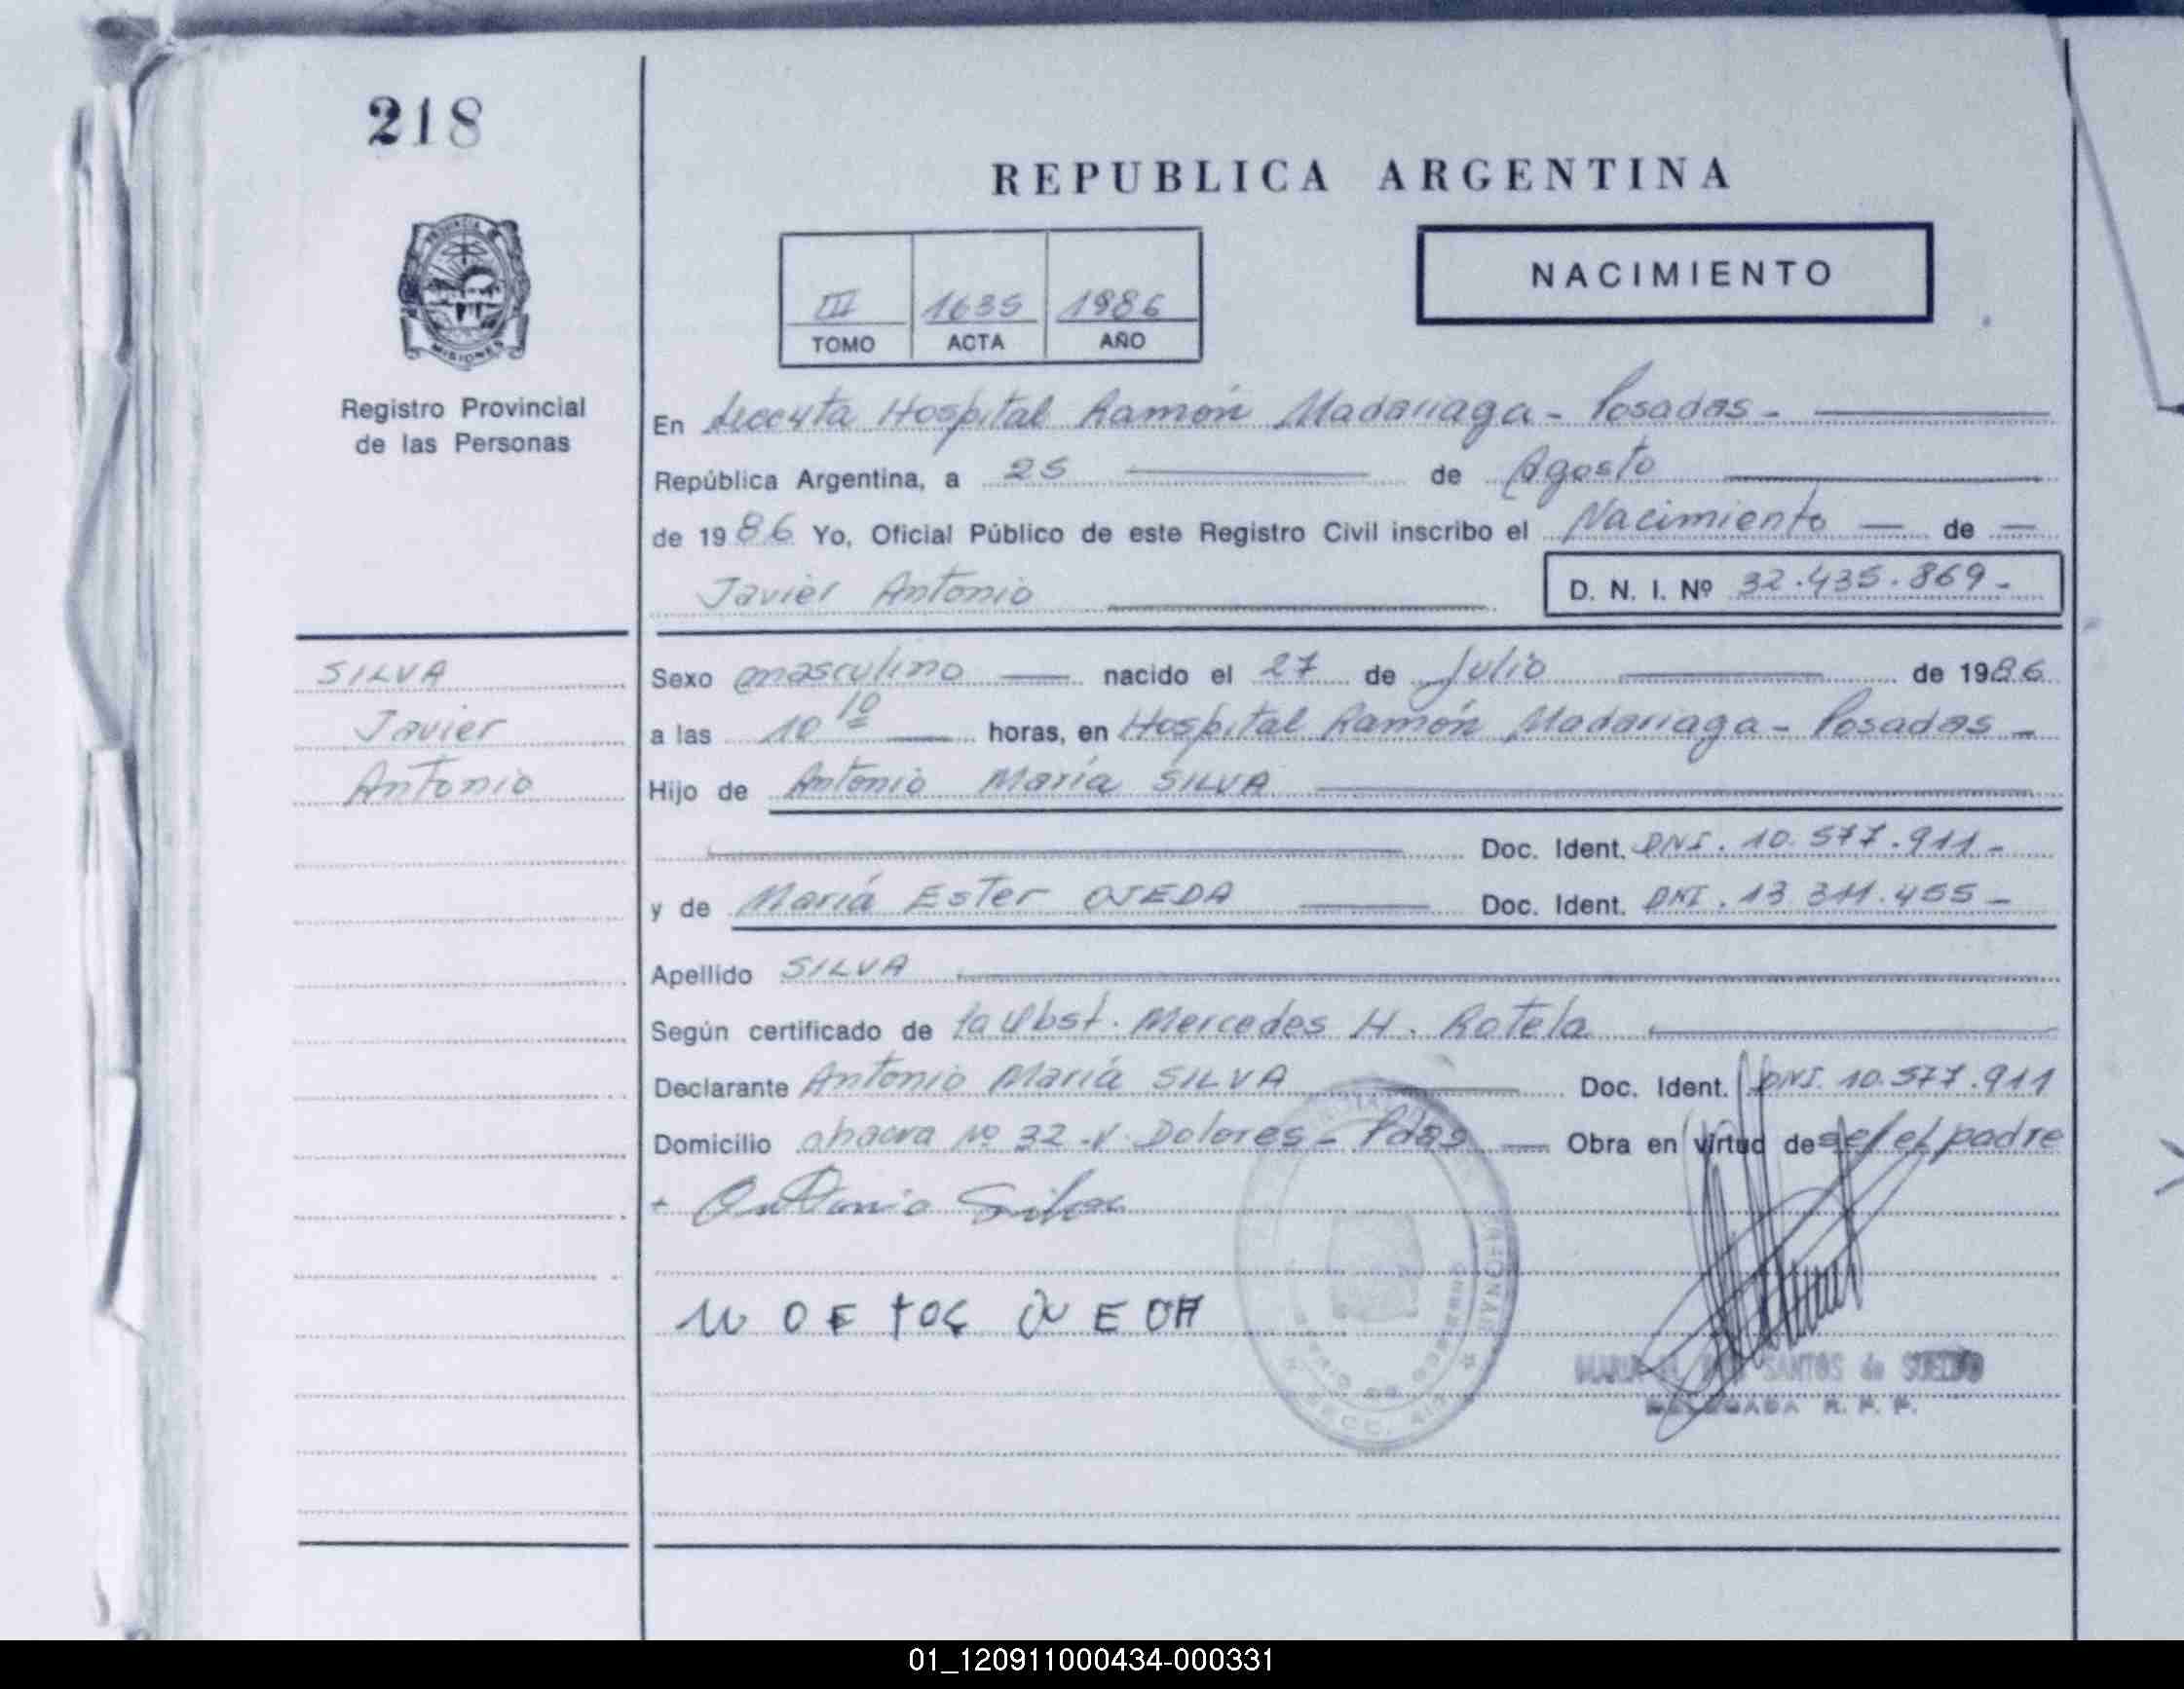 218
REPUBLICA ARGENTINA
PROVINCIA DE
MISIONES
NACIMIENTO
III 1635 1986
TOMO ACTA AÑO
Registro Provincial
de las Personas
En Hospital Ramón Madariaga - Posadas -
República Argentina, a 25 de Agosto
de 1986 Yo, Oficial Público de este Registro Civil inscribo el Nacimiento de
Javier Antonio D. N. I. Nº 32.435.869-
SILVA
Javier
Antonio
Sexo masculino nacido el 27 de Julio de 1986
a las 10 10 horas, en Hospital Ramón Madariaga - Posadas -
Hijo de Antonio María SILVA
Doc. Ident. DNI. 10.577.911-
y de María Ester OJEDA Doc. Ident. DNI. 13 311.455-
Apellido SILVA
Según certificado de la Obst. Mercedes H. Rotela
Declarante Antonio María SILVA Doc. Ident. DNI. 10.577.911
Domicilio chacra Nº 32 - V. Dolores - Pdas Obra en virtud de ser el padre
+ Antonio Silva
SANTOS de SUELDO
R. P. P.
01_120911000434-000331